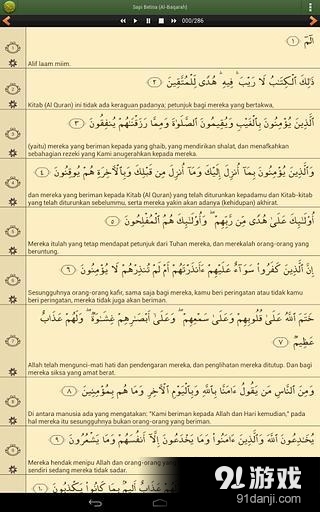 Sapi Betina (Al-Baqarah)
000/286
الٓمٓ ﴿١﴾
Alif laam miim.
ذَٰلِكَ ٱلْكِتَٰبُ لَا رَيْبَ ۛ فِيهِ ۛ هُدًى لِّلْمُتَّقِينَ ﴿٢﴾
Kitab (Al Quran) ini tidak ada keraguan padanya; petunjuk bagi mereka yang bertakwa,
ٱلَّذِينَ يُؤْمِنُونَ بِٱلْغَيْبِ وَيُقِيمُونَ ٱلصَّلَوٰةَ وَمِمَّا رَزَقْنَٰهُمْ يُنفِقُونَ ﴿٣﴾
(yaitu) mereka yang beriman kepada yang ghaib, yang mendirikan shalat, dan menafkahkan
sebahagian rezeki yang Kami anugerahkan kepada mereka.
وَٱلَّذِينَ يُؤْمِنُونَ بِمَآ أُنزِلَ إِلَيْكَ وَمَآ أُنزِلَ مِن قَبْلِكَ وَبِٱلْءَاخِرَةِ هُمْ يُوقِنُونَ ﴿٤﴾
dan mereka yang beriman kepada Kitab (Al Quran) yang telah diturunkan kepadamu dan Kitab-kitab
yang telah diturunkan sebelummu, serta mereka yakin akan adanya (kehidupan) akhirat.
أُو۟لَٰٓئِكَ عَلَىٰ هُدًى مِّن رَّبِّهِمْ ۖ وَأُو۟لَٰٓئِكَ هُمُ ٱلْمُفْلِحُونَ ﴿٥﴾
Mereka itulah yang tetap mendapat petunjuk dari Tuhan mereka, dan merekalah orang-orang yang
beruntung.
إِنَّ ٱلَّذِينَ كَفَرُوا۟ سَوَآءٌ عَلَيْهِمْ ءَأَنذَرْتَهُمْ أَمْ لَمْ تُنذِرْهُمْ لَا يُؤْمِنُونَ ﴿٦﴾
Sesungguhnya orang-orang kafir, sama saja bagi mereka, kamu beri peringatan atau tidak kamu
beri peringatan, mereka tidak juga akan beriman.
خَتَمَ ٱللَّهُ عَلَىٰ قُلُوبِهِمْ وَعَلَىٰ سَمْعِهِمْ ۖ وَعَلَىٰٓ أَبْصَٰرِهِمْ غِشَٰوَةٌ ۖ وَلَهُمْ عَذَابٌ
عَظِيمٌ ﴿٧﴾
Allah telah mengunci-mati hati dan pendengaran mereka, dan penglihatan mereka ditutup. Dan bagi
mereka siksa yang amat berat.
وَمِنَ ٱلنَّاسِ مَن يَقُولُ ءَامَنَّا بِٱللَّهِ وَبِٱلْيَوْمِ ٱلْءَاخِرِ وَمَا هُم بِمُؤْمِنِينَ ﴿٨﴾
Di antara manusia ada yang mengatakan: "Kami beriman kepada Allah dan Hari kemudian," pada
hal mereka itu sesungguhnya bukan orang-orang yang
يُخَٰدِعُونَ ٱللَّهَ وَٱلَّذِينَ ءَامَنُوا۟ وَمَا يَخْدَعُونَ إِلَّآ أَنفُسَهُمْ وَمَا يَشْعُرُونَ ﴿٩﴾
Mereka hendak menipu Allah dan orang-orang
sendiri sedang mereka tidak sadar.
91游戏
91danji.com